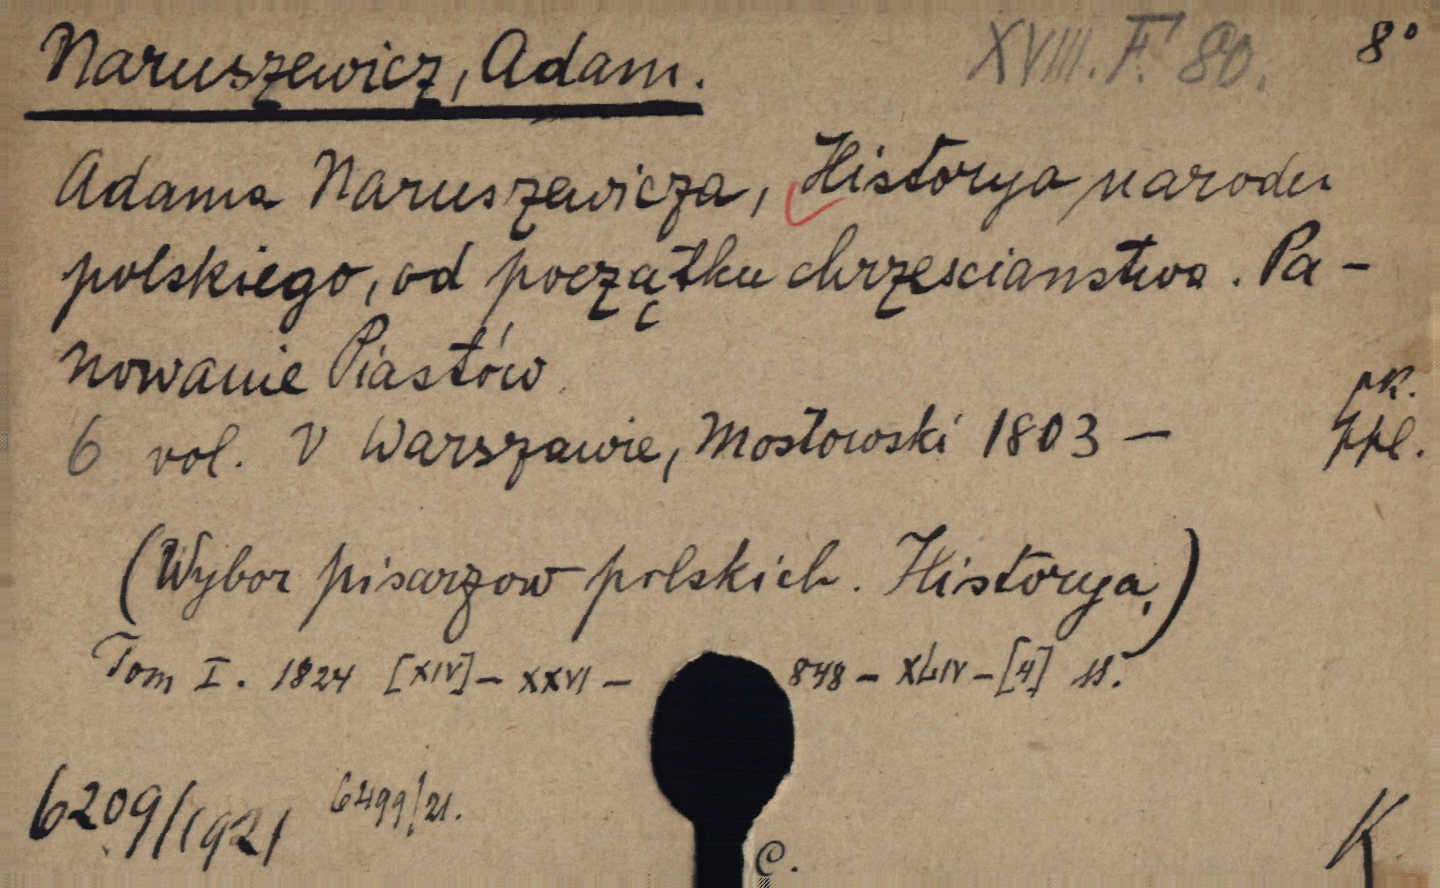 Naruszewicz, Adam. XVIII. F. 80. 8°
Adama Naruszewicza, Historya narodu
polskiego, od początku chrzescianstwa. Pa-
nowanie Piastów.
6 vol. V Warszawie, Mostowski 1803 —
ppl.
(Wybor pisarzow polskich. Historya.)
Tom I. 1824 [XIV] - XXVI - 848 - XLIV - [4] ss.
6209/1921 6499/21.
C. K